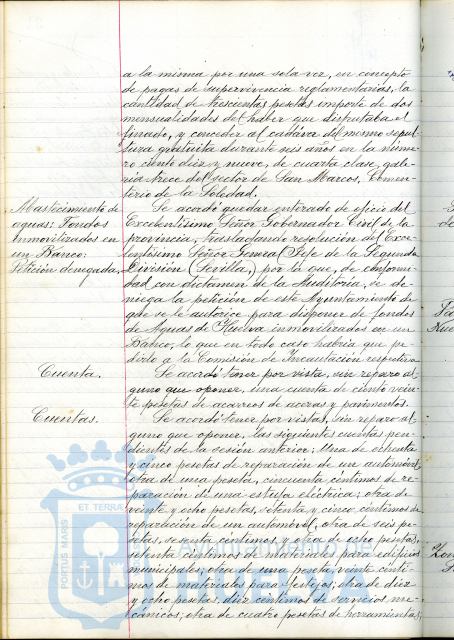 a la misma por una sola vez, en concepto
de pagas de supervivencia reglamentarias, la
cantidad de trescientas pesetas importe de dos
mensualidades del haber que disfrutaba el
finado, y conceder al cadáver del mismo sepul-
tura gratuita durante seis años en la núme-
ro ciento diez y nueve, de cuarta clase, gale-
ria trece del sector de San Marcos, Cemen-
terio de la Soledad.
Abastecimiento de
aguas: Fondos
inmovilizados en
un Banco:
Petición denegada.
Se acordó quedar enterado de oficio del
Excelentísimo Señor Gobernador Civil de la
provincia, trasladando resolución del Exce-
lentísimo Señor General Jefe de la Segunda
División (Sevilla,) por la que, de conformi-
dad con dictamen de la Auditoria, se de-
niega la petición de este Ayuntamiento de
que se le autorice para disponer de fondos
de Aguas de Huelva inmovilizados en un
Banco, lo que en todo caso habría que pe-
dirlo a la Comisión de Incautación respectiva.
Cuenta.
Se acordó tener por vista, sin reparo al-
guno que oponer, una cuenta de ciento vein-
te pesetas de acarreos de aceras y pavimentos.
Cuentas.
Se acordó tener por vistas, sin reparo al-
guno que oponer, las siguientes cuentas pen-
dientes de la sesión anterior: Una de ochenta
y cinco pesetas de reparación de un automóvil,
otra de una peseta, cincuenta céntimos de re-
paración de una estufa eléctrica; otra de
veinte y ocho pesetas, setenta y cinco céntimos de
reparación de un automóvil, otra de seis pe-
setas, sesenta céntimos y otra de ocho pesetas,
setenta céntimos de materiales para edificios
municipales; otra de una peseta, veinte cénti-
mos de materiales para festejos; otra de diez
y ocho pesetas, diez céntimos de servicios me-
cánicos; otra de cuatro pesetas de herramientas;
PORTUS MARIS
ET TERRA